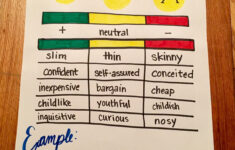 + neutral -
slim thin skinny
confident self-assured conceited
inexpensive bargain cheap
childlike youthful childish
inquisitive curious nosy
Example: